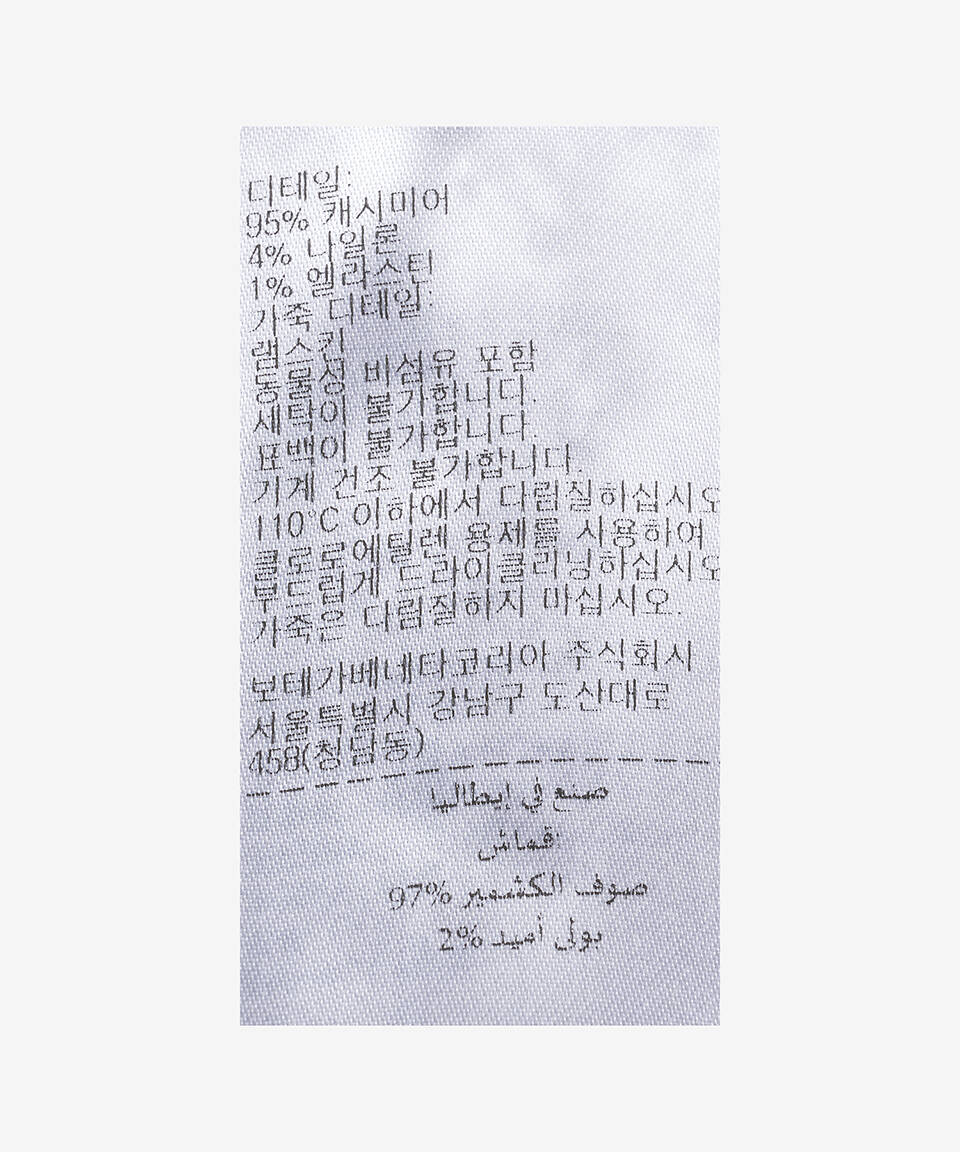 디테일:
95% 캐시미어
4% 나일론
1% 엘라스틴
가죽 디테일:
램스킨
동물성 비섬유 포함
세탁이 불가합니다.
표백이 불가합니다.
기계 건조 불가합니다.
110°C 이하에서 다림질하십시오
클로로에틸렌 용제를 사용하여
부드럽게 드라이클리닝하십시오
가죽은 다림질하지 마십시오.
보테가베네타코리아 주식회사
서울특별시 강남구 도산대로
458(청담동)
صنع في إيطاليا
قماش
صوف الكشمير 97%
بولي أميد 2%